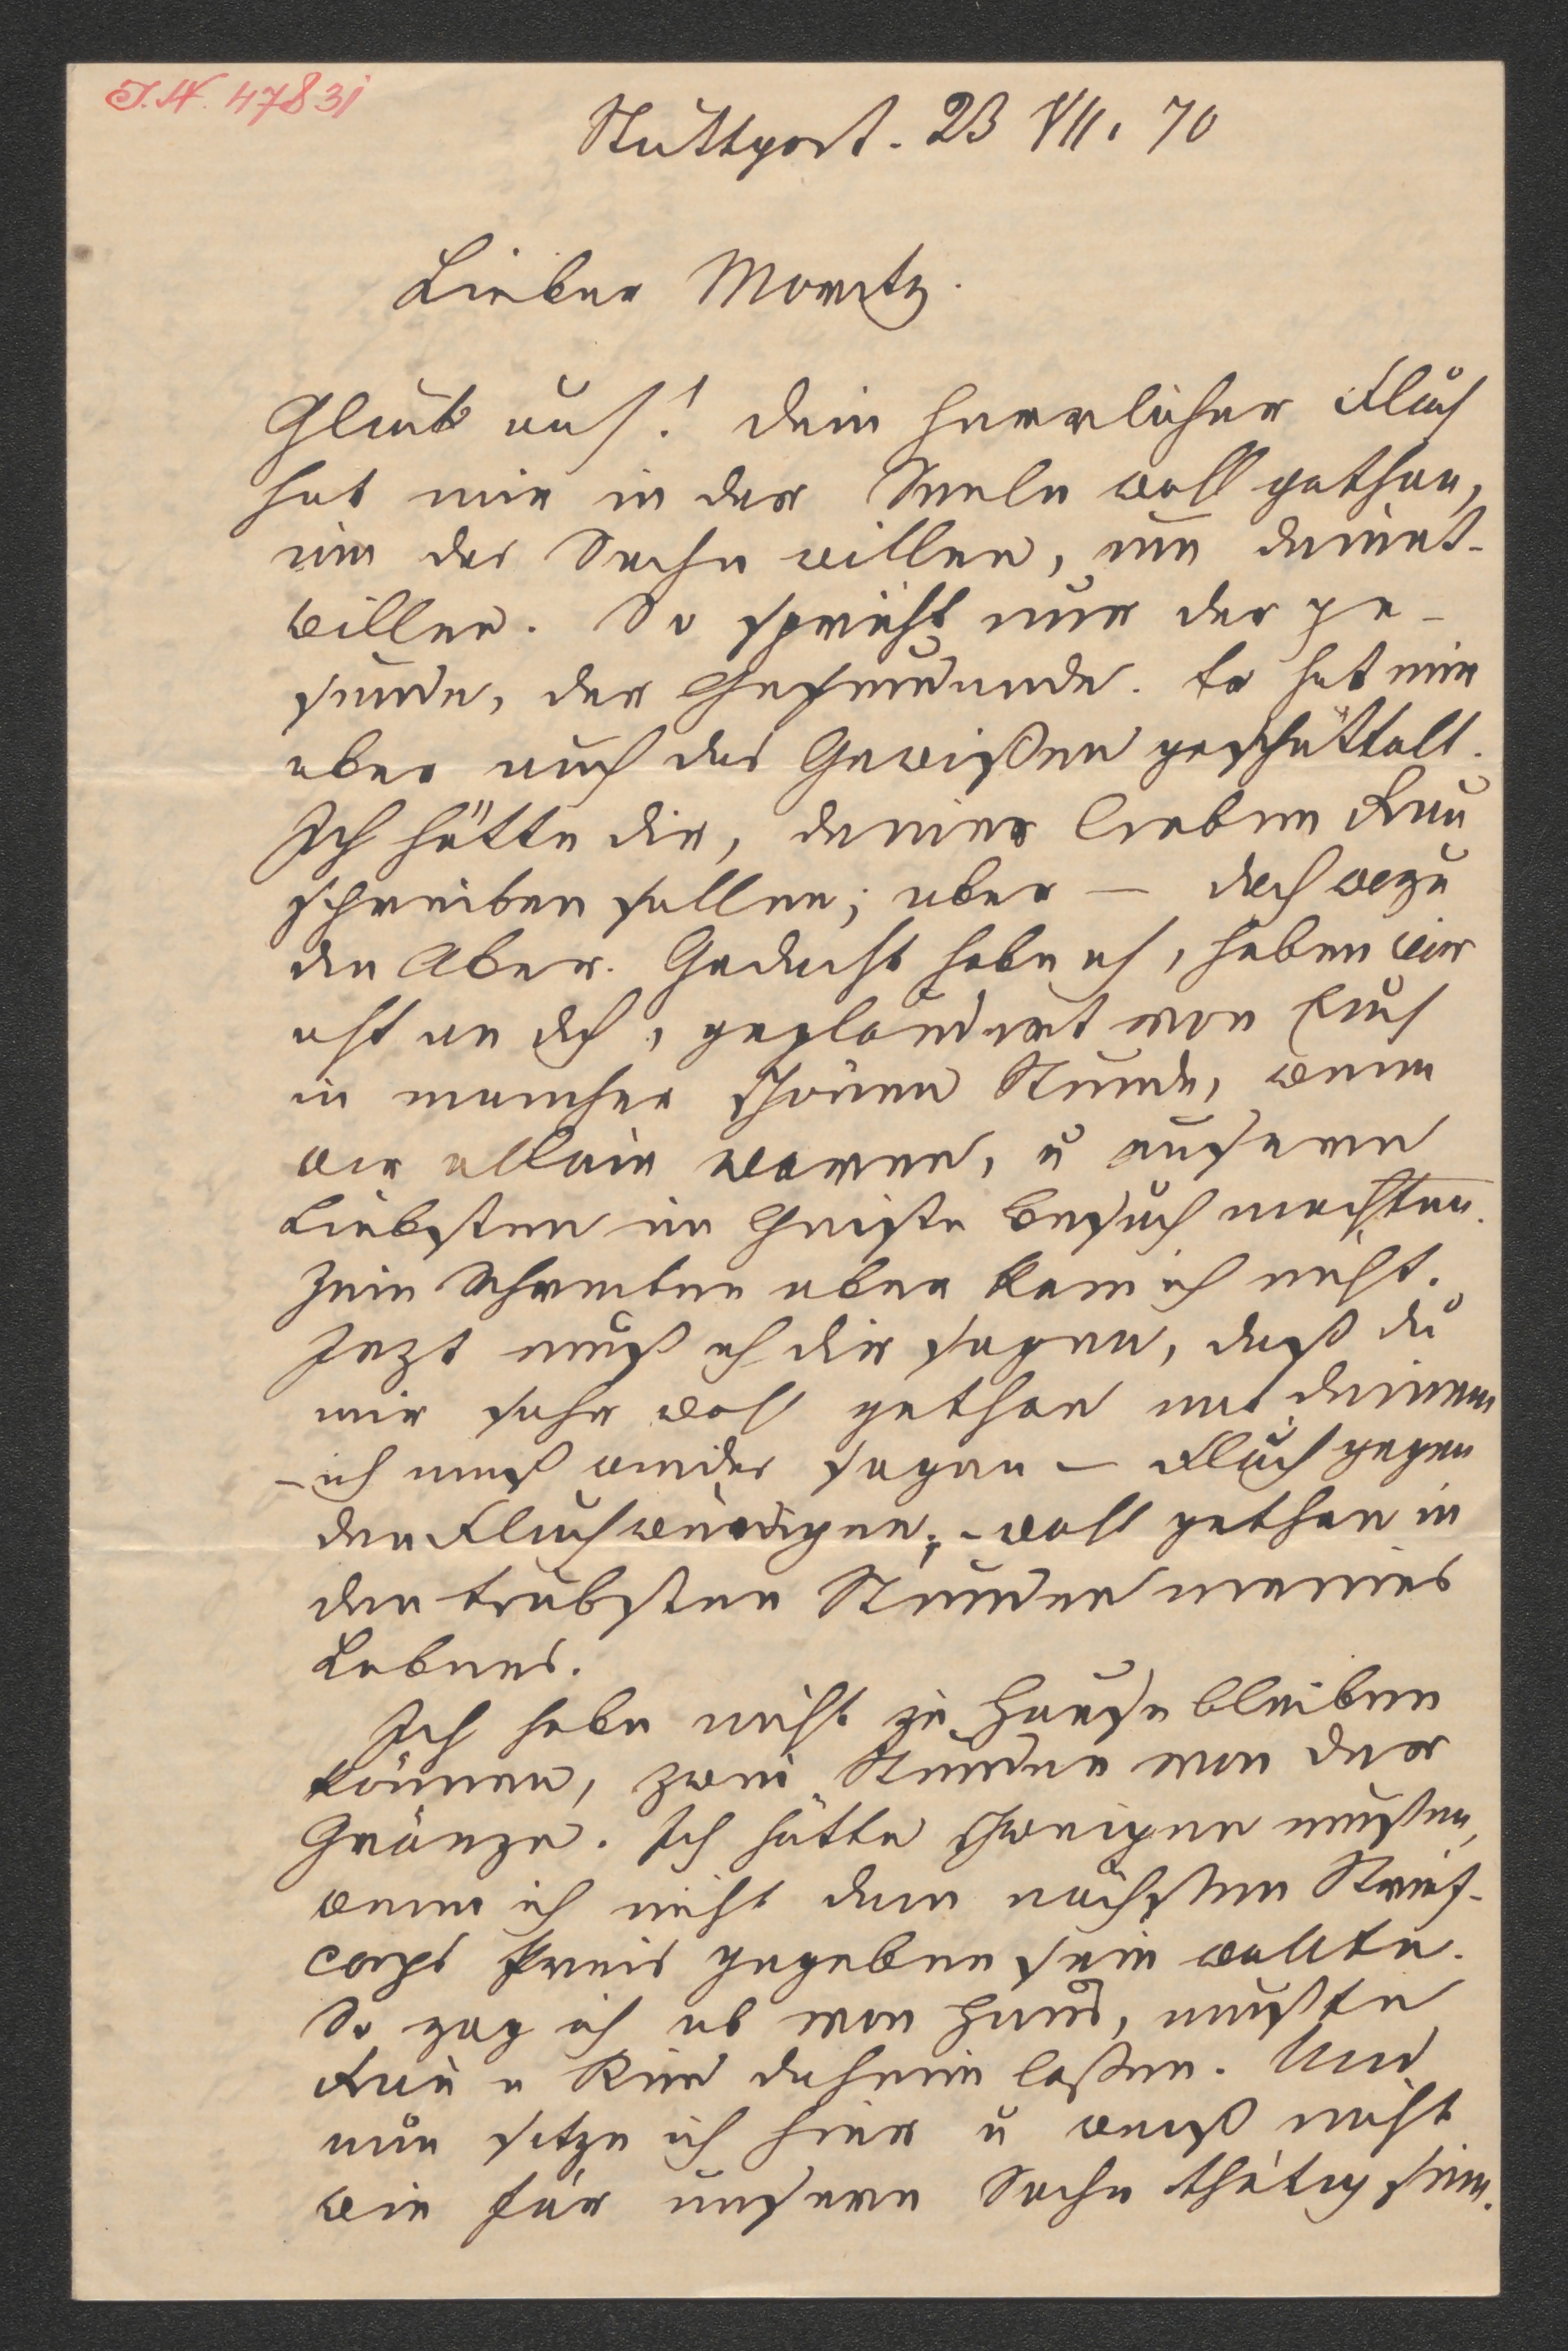 I.N. 47831
Stuttgart. 23 VII. 70
Lieber Moritz.
Glück auf! Dein herrlicher Fluch
hat mir in der Seele wohl gethan,
um der Sache willen, um deinet-
willen. So spricht nur der ge-
sunde, der Gesundende. Er hat mir
aber auch das Gewißen geschüttelt.
Ich hätte dir, deiner lieben Frau
schreiben sollen; aber — doch wozu
die Aber. Gedacht habe ich, haben wir
oft an dich, geplaudert von Euch
in mancher schönen Stunde, wenn
wir allein waren, u unseren
Liebsten im Geiste Besuch machten.
Zum Schreiben aber kam ich nicht.
Jezt muß ich dir sagen, daß du
mir sehr wohl gethan mit deinem
– ich muß wieder sagen – Fluch gegen
den Fluchwürdigen; – wohl gethan in
den trübsten Stunden meines
Lebens.
Ich habe nicht zu Hause bleiben
können, zwei Stunden von der
Gränze. Ich hätte schweigen müßen,
wenn ich nicht dem nächsten Streif-
corps Preis gegeben sein wollte.
So zog ich ab von Haus, mußte
Frau u Kind daheim laßen. Und
nun sitze ich hier u weiß nicht
wie für unsere Sache thätig sein.